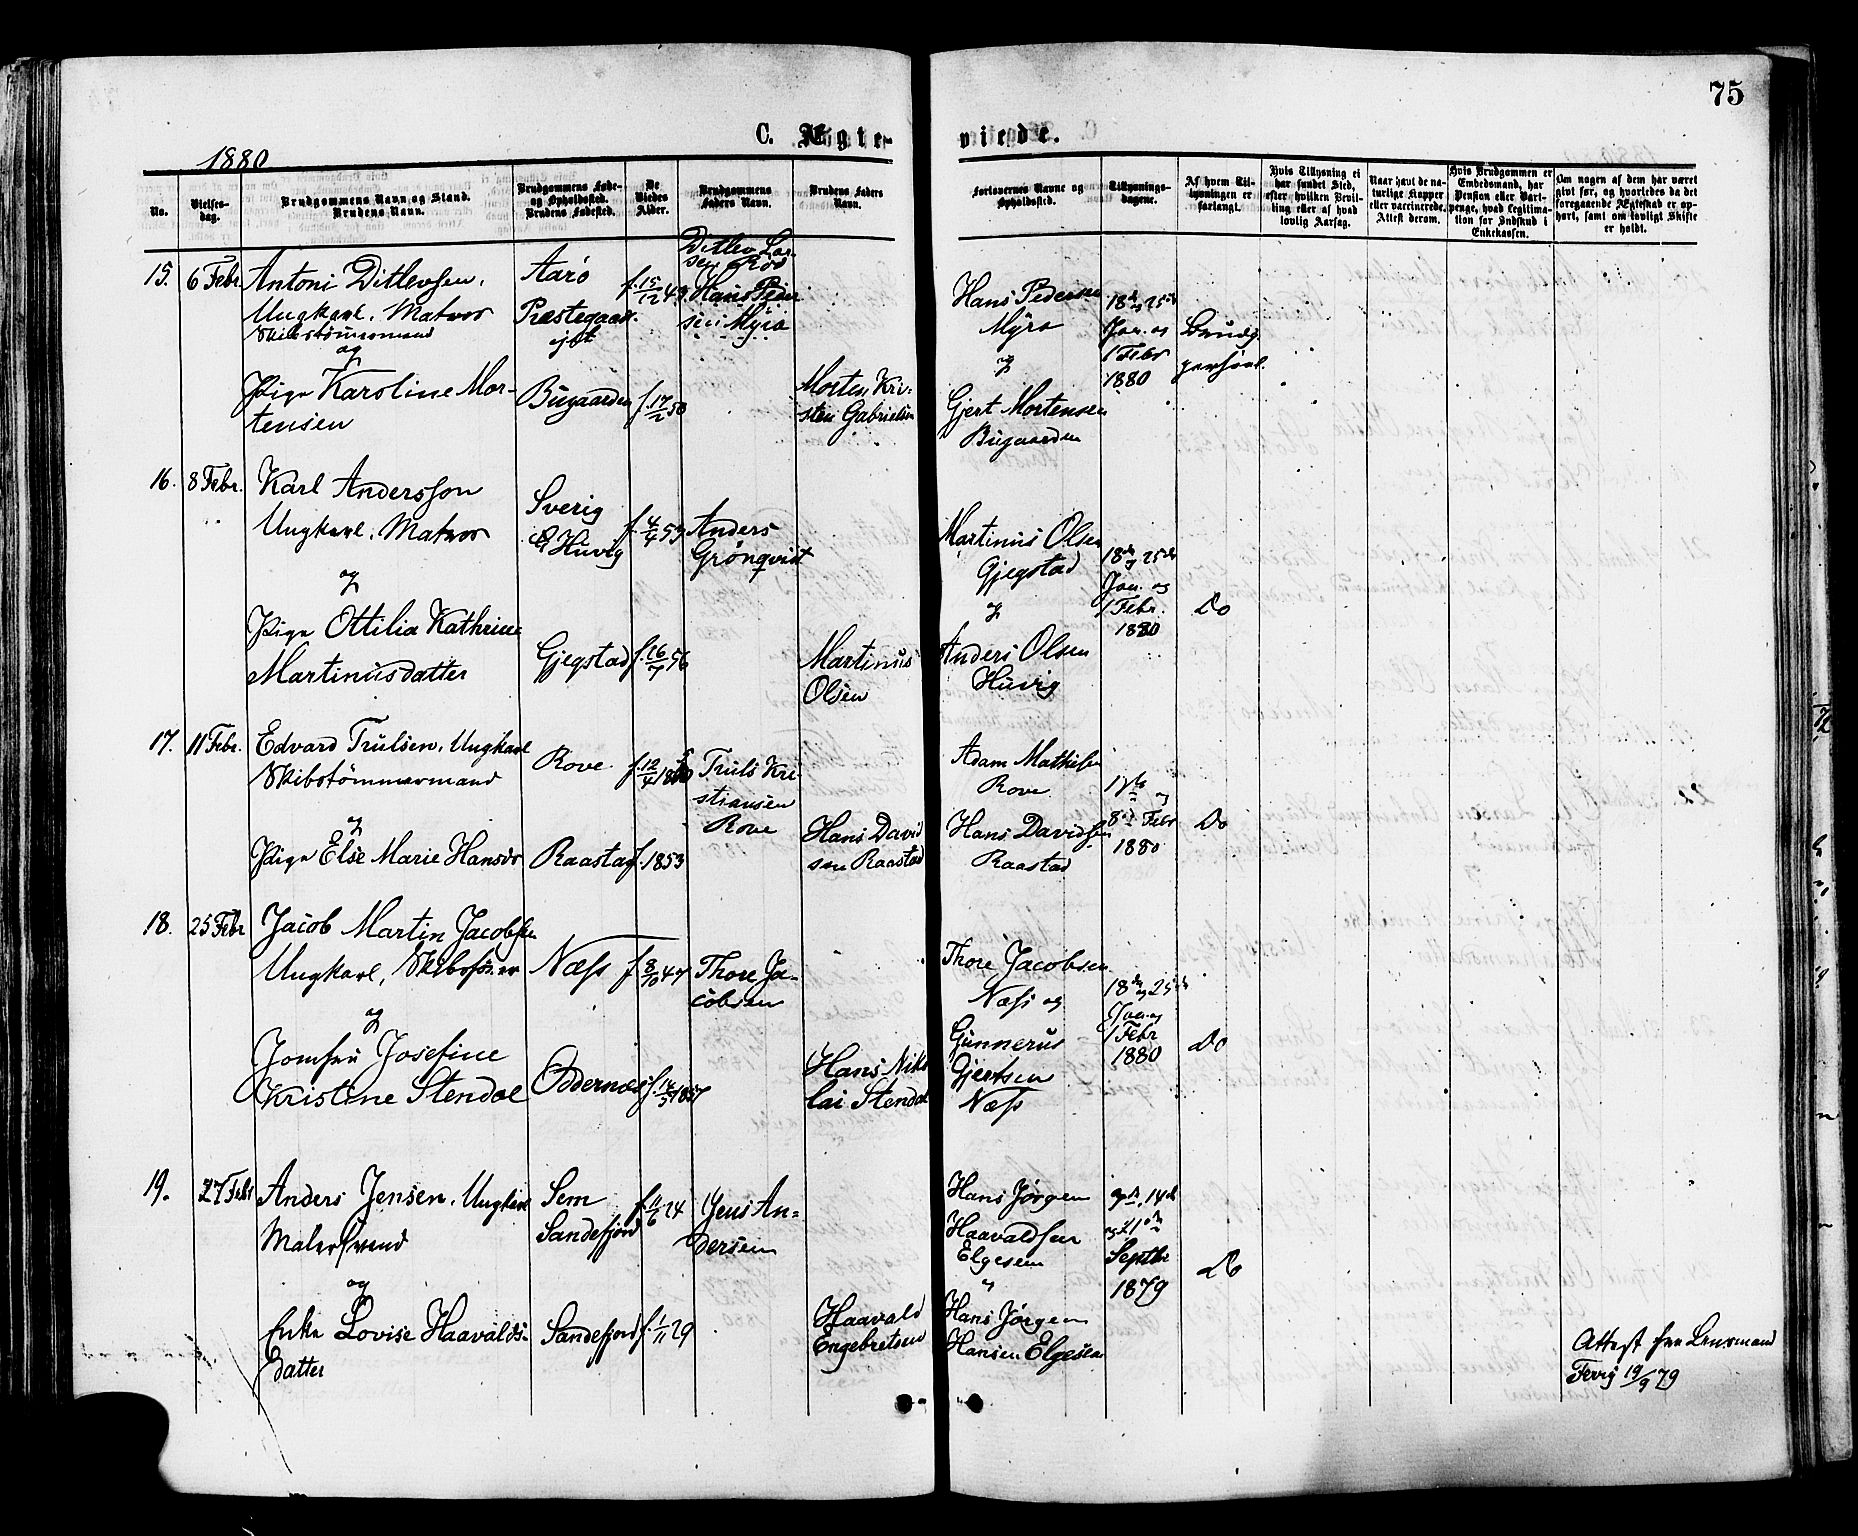 75
C. Ægte-
viede.
1880
No.
Vielses-
dag.
Brudgommens Navn og Stand.
Brudens Navn.
Brudgommens Føde-
og Opholdssted.
Brudens Fødested.
De
Viedes
Alder.
Brudgommens
Faders Navn.
Brudens Faders
Navn.
Forlovernes Navne og
Opholdssted.
Tillysnings-
dagene.
Af hvem Til-
lysningen er
forlangt.
Hvis Tillysning ei
har fundet Sted,
efter hvilken Bevil-
ling eller af hvad
lovlig Aarsag.
Naar havt de na-
turlige Kopper
eller vaccinerede.
Attest derom.
Hvis Brudgommen er
Embedsmand, har
Pension eller Vart-
penge, hvad Legitima-
tion for Indskud i
Enkekassen.
Om nogen af dem har været
givt før, og hvorledes da det
foregaaende Ægteskab er op-
hørt, samt om lovligt Skifte
er holdt.
15.
6 Febr.
Antoni Ditlevsen,
Ungkarl, Matros
Skibstømmermand
og
Pige Karoline Mor-
tensen
Aarø
Præstegaar-
ejet
Bugaarden
f. 15/12 49
f. 17/2 50
Ditlev Lar-
sen
Hans Peder
sen Myra
Morten Kri-
sten Gabrielsen
Hans Pedersen
Myra
og
Gjert Mortensen
Bugaarden
18de og 25de
Jan. og
1 Febr
1880
Brudg.
personl.
16.
8 Febr.
Karl Andersson
Ungkarl, Matros
og
Pige Ottilia Kathrine
Martinusdatter
Sverig
& Huvig
Gjegstad
f. 4/4 53
f. 16/7 56
Anders
Grönqvist
Martinus
Olsen
Martinus Olsen
Gjegstad
og
Anders Olsen
Huvig
18de og 25de
Jan. og
1 Febr.
1880
Do
17.
11 Febr.
Edvard Trulsen, Ungkarl
Skibstømmermand
og
Pige Else Marie Hansdr
Rove
Raastad
f. 12/4
f. 1853
Truls Kri-
stiansen
Rove
Hans David
sen Raastad
Adam Mathisen
Rove
Hans Davidsen
Raastad
1ste og
8de Febr
1880
Do
18.
25 Febr
Jacob Martin Jacobsen
Ungkarl, Skibsfører
og
Jomfru Josefine
Kristine Stendal
Næss
Oddernæs
f. 8/10 47
f. 14/3 1857
Thore Ja-
cobsen
Hans Niko
lai Stendal
Thore Jacobsen
Næss og
Gunnerus
Gjertsen
Næss
18de og 25de
Jan. og
1 Febr
1880
Do
19.
27 Febr
Anders Jensen, Ungkarl
Malersvend
og
Enke Lovise Haavalds-
datter
Sem
Sandefjord
Sandefjord
f. 11/6 24
f. 1/11 29
Jens An-
dersen
Haavald
Engebretsen
Hans Jørgen
Haavaldsen
Elgesem
"
Hans Jørgen
Hansen Elgesem
7de, 14de
og 21de
Septbr
1879
Do
Attest fra Lensmand
Tevig 19/9 79